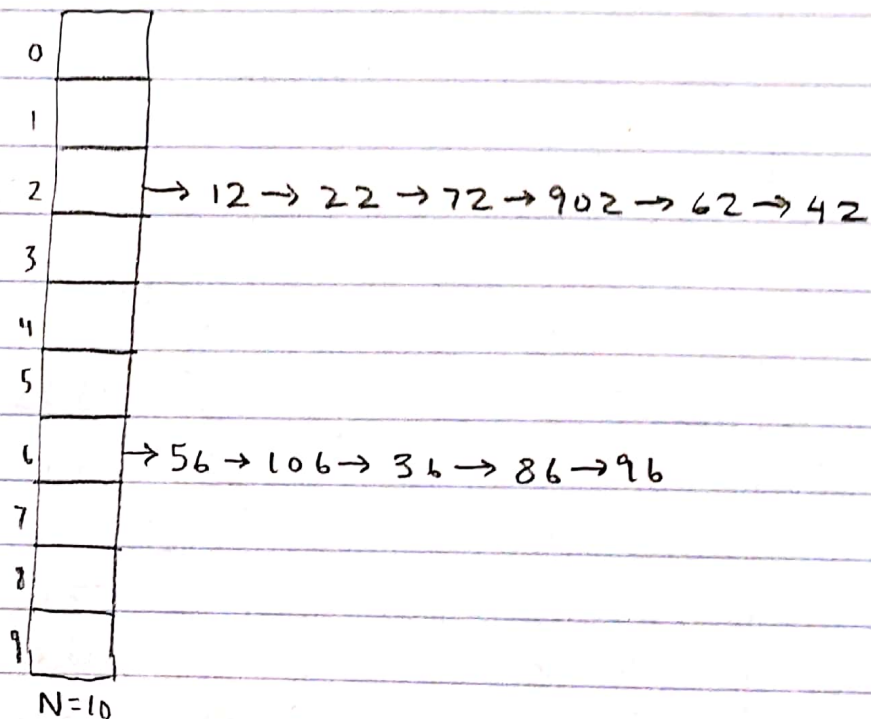 0
1
2 → 12 → 22 → 72 → 902 → 62 → 42
3
4
5
6 → 56 → 106 → 36 → 86 → 96
7
8
9
N=10